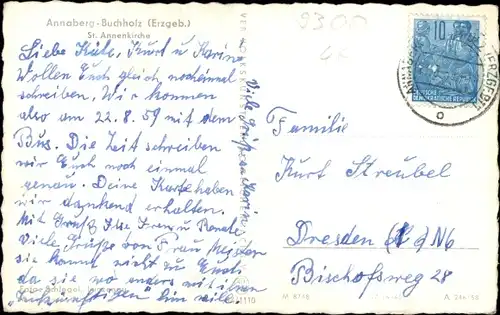 Annaberg-Buchholz (Erzgeb.)
St. Annenkirche
Liebe Käte, Kurt u. Karin
Wollen Euch gleich nocheinmal
schreiben. Wir kommen
also am 22.8.59 mit dem
Bus. Die Zeit schreiben
wir Euch noch einmal
genau. Deine Karte haben
wir dankend erhalten.
Mit Gruß Ilse Irene u. Renate
Viele Grüße von Frau Meister
sie kommt nicht zu Euch
da sie wo anders mit ihrem
"zukünftigen" hin will.
Viele Grüße an Karin
9300
10
DEUTSCHE
DEMOKRATISCHE REPUBLIK
Familie
Kurt Streubel
Dresden N6
Bischofsweg 28
M 8748